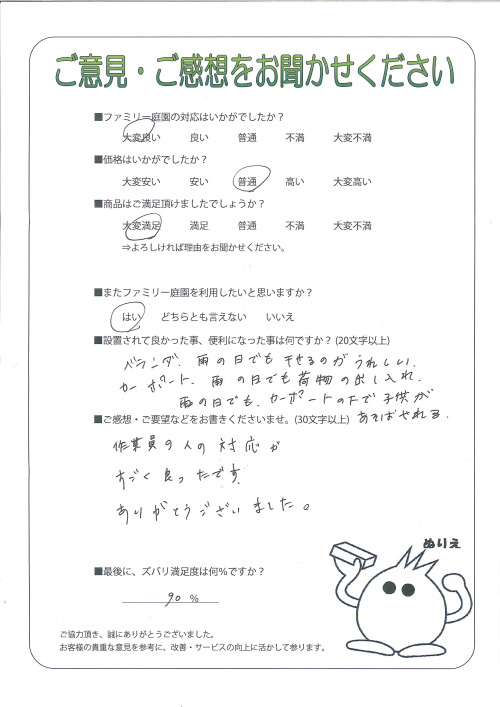 ご意見・ご感想をお聞かせください
■ファミリー庭園の対応はいかがでしたか？
大変良い 良い 普通 不満 大変不満
■価格はいかがでしたか？
大変安い 安い 普通 高い 大変高い
■商品はご満足頂けましたでしょうか？
大変満足 満足 普通 不満 大変不満
⇒よろしければ理由をお聞かせください。
■またファミリー庭園を利用したいと思いますか？
はい どちらとも言えない いいえ
■設置されて良かった事、便利になった事は何ですか？(20文字以上)
ベランダ、雨の日でも干せるのがうれしい。
カーポート、雨の日でも荷物の出し入れ、
雨の日でも、カーポートの下で子供が
あそばやれる。
■ご感想・ご要望などをお書きくださいませ。(30文字以上)
作業員の人の対応が
すごく良ったです
ありがとうございました。
ぬりえ
■最後に、ズバリ満足度は何％ですか？
90 ％
ご協力頂き、誠にありがとうございました。
お客様の貴重な意見を参考に、改善・サービスの向上に活かして参ります。